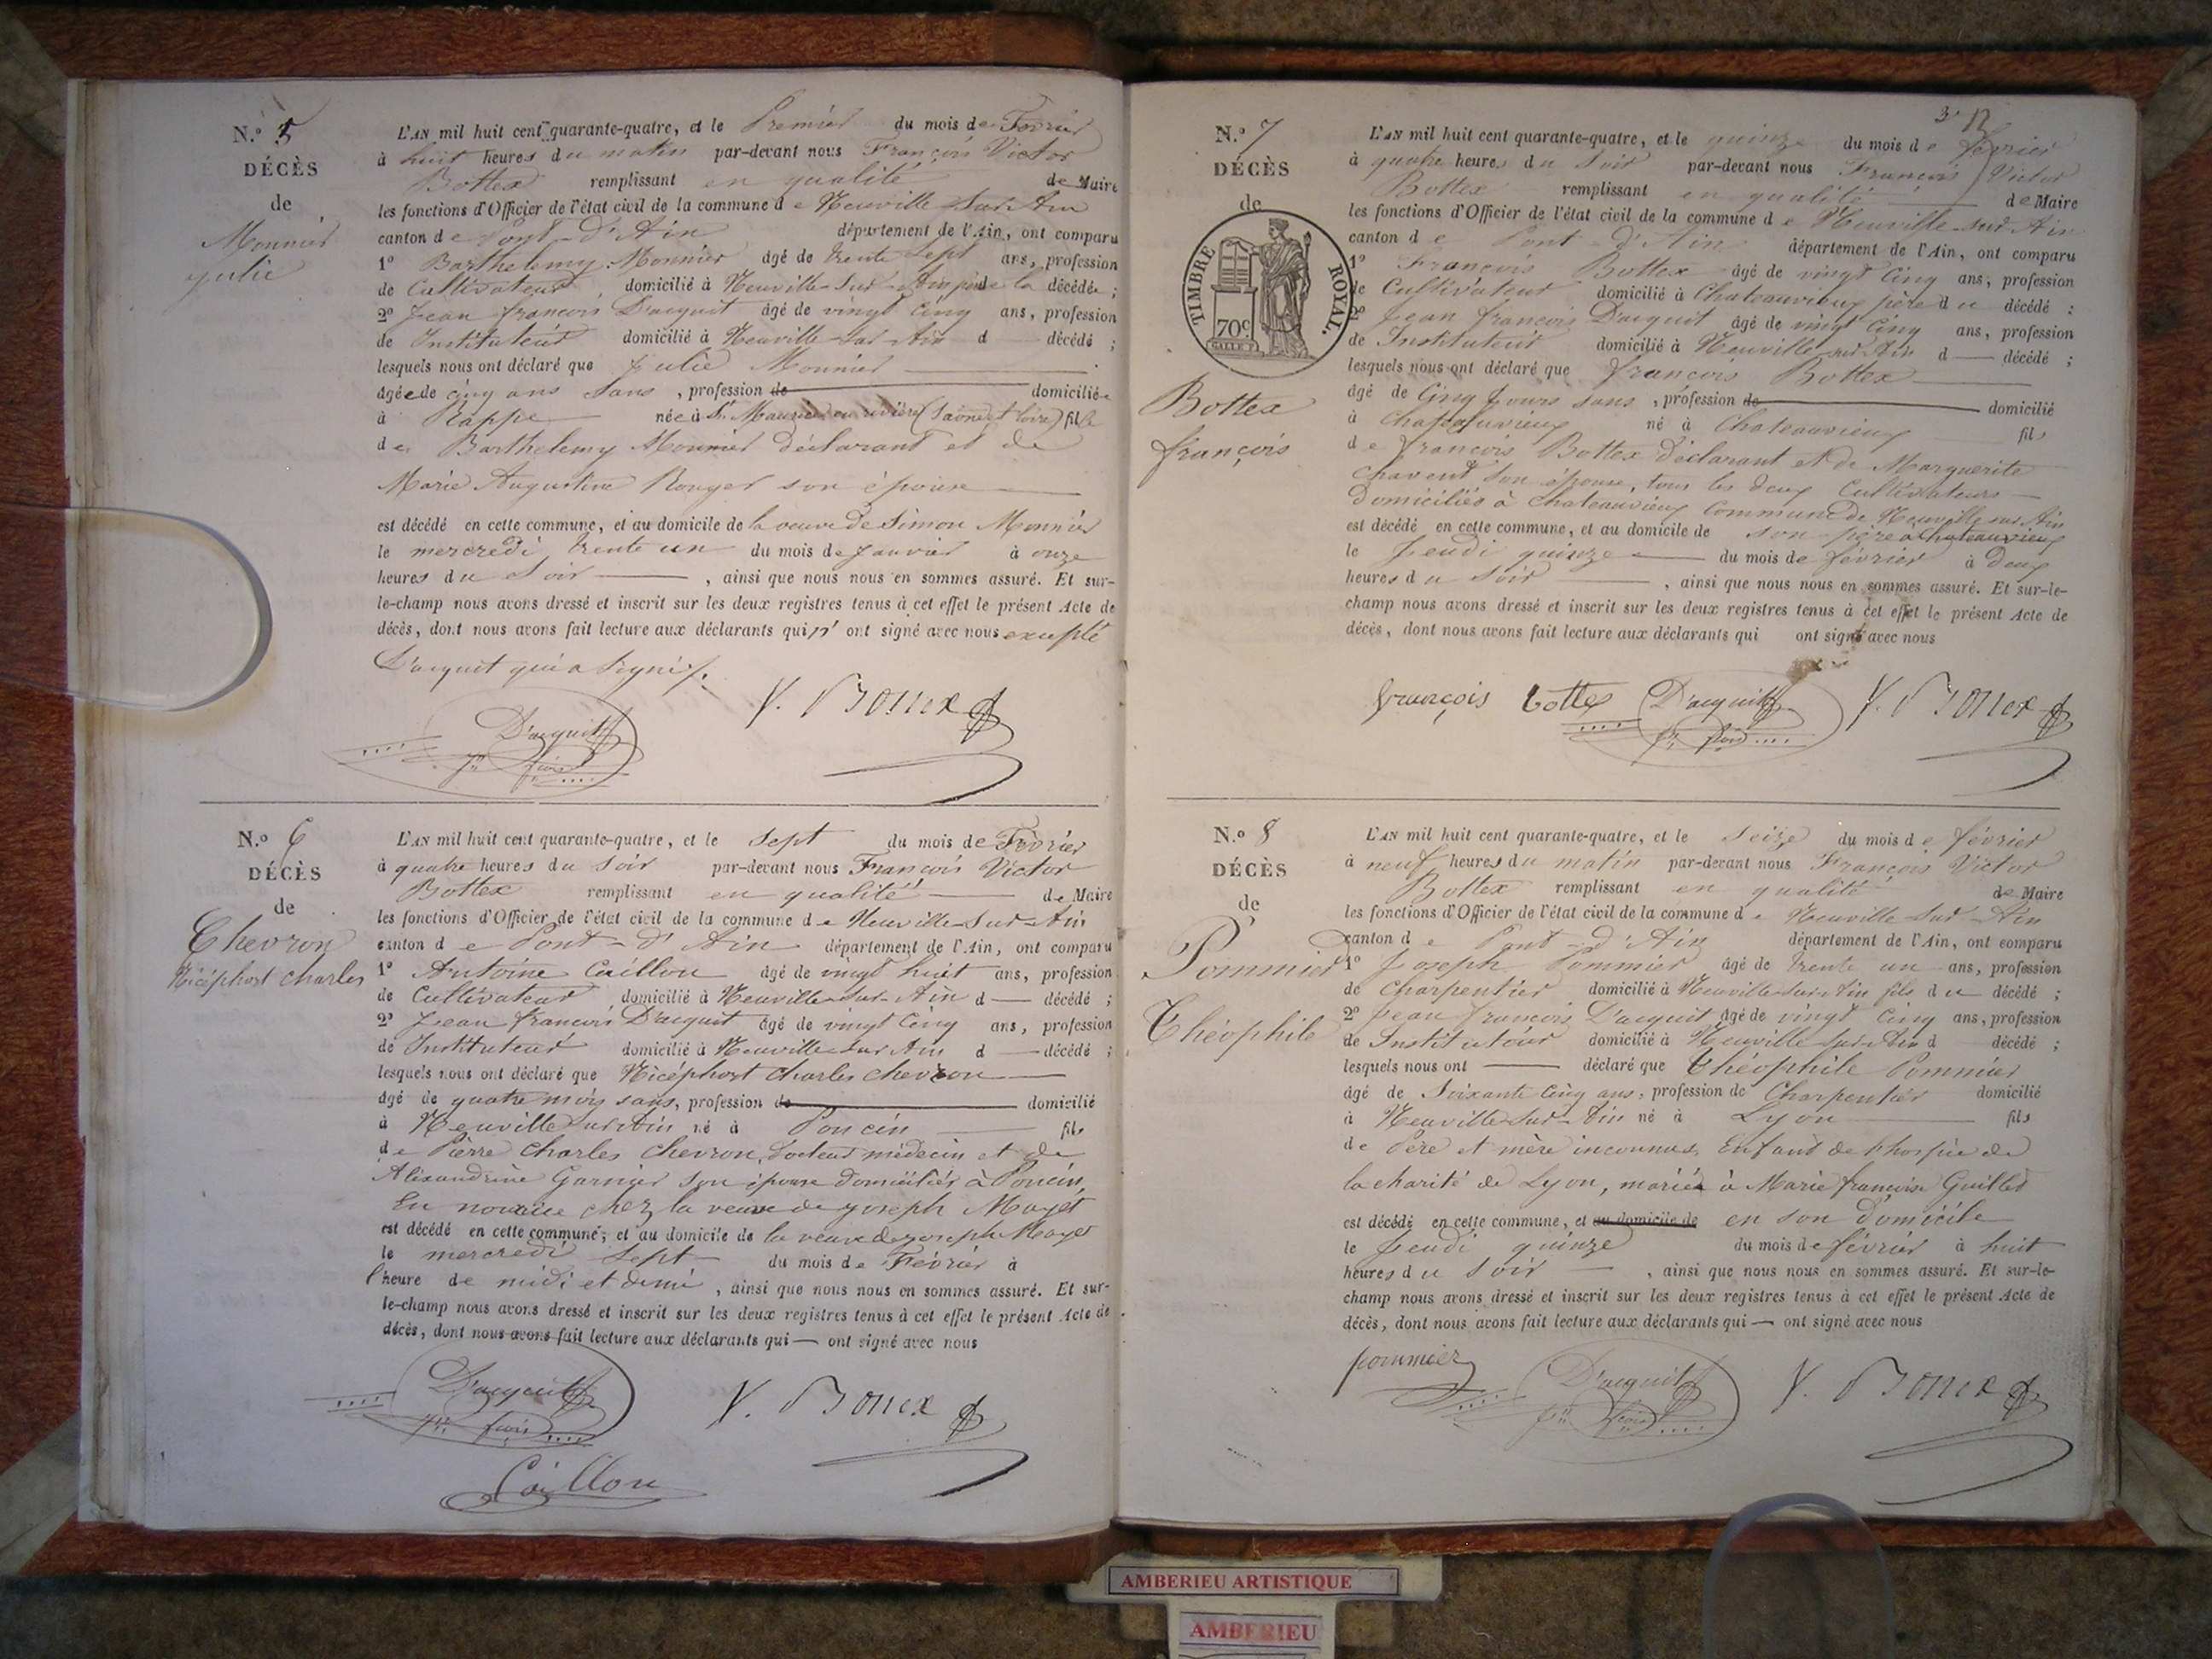 N.o 5
DÉCÈS
de
Monnier
julie
L'AN mil huit cent quarante-quatre, et le Premier du mois de Février
à huit heures du matin par-devant nous François Victor
Bottex remplissant en qualité de Maire
les fonctions d'Officier de l'état civil de la commune de Neuville-Sur-Ain
canton de Pont-d'Ain département de l'Ain, ont comparu
1o Barthelemy Monnier âgé de trente sept ans, profession
de Cultivateur, domicilié à Neuville-Sur-Ain père de la décédée;
2o Jean françois D'acquit âgé de vingt cinq ans, profession
de Instituteur domicilié à Neuville-sur-Ain d décédé;
lesquels nous ont déclaré que Julie Monnier
âgée de cinq ans Sans, profession de domiciliée
à Rappe née à St Maurice en rivière (Saône et loire) fille
de Barthelemy Monnier déclarant et de
Marie Augustine Rouget son épouse
est décédé en cette commune, et au domicile de la veuve de Simon Monnier
le mercredi trente un du mois de janvier à onze
heures du Soir, ainsi que nous nous en sommes assuré. Et sur-
le-champ nous avons dressé et inscrit sur les deux registres tenus à cet effet le présent Acte de
décès, dont nous avons fait lecture aux déclarants qui n'ont signé avec nous excepté
D'acquit qui a Signé.
D'acquit
jn fçois
V. Bottex
N.o 6
DÉCÈS
de
Chevron
Nicéphort charles
L'AN mil huit cent quarante-quatre, et le Sept du mois de Février
à quatre heures du Soir par-devant nous François Victor
Bottex remplissant en qualité de Maire
les fonctions d'Officier de l'état civil de la commune de Neuville-Sur-Ain
canton de Pont-d'Ain département de l'Ain, ont comparu
1o Antoine Caillon âgé de vingt huit ans, profession
de Cultivateur domicilié à Neuville-Sur-Ain d décédé;
2o Jean françois D'acquit âgé de vingt Cinq ans, profession
de Instituteur domicilié à Neuville Sur Ain d décédé;
lesquels nous ont déclaré que Nicéphort Charles chevron
âgé de quatre mois sans, profession de domicilié
à Neuville sur Ain né à Poncin fils
de Pierre Charles Chevron, Docteur médecin et de
Alexandrine Garnier son épouse domiciliés à Poncin,
En nourice chez la veuve de joseph Mayet
est décédé en cette commune, et au domicile de la veuve de joseph Mayet
le mercredi Sept du mois de Février à
l'heure de midi et demi, ainsi que nous nous en sommes assuré. Et sur-
le-champ nous avons dressé et inscrit sur les deux registres tenus à cet effet le présent Acte de
décès, dont nous avons fait lecture aux déclarants qui ont signé avec nous
D'acquit
jn fçois
V. Bottex
Caillon
3 12
N.o 7
DÉCÈS
de
TIMBRE ROYAL.
70c
Bottex
françois
L'AN mil huit cent quarante-quatre, et le quinze du mois de février
à quatre heures du Soir par-devant nous François Victor
Bottex remplissant en qualité de Maire
les fonctions d'Officier de l'état civil de la commune de Neuville-sur-Ain
canton de Pont-d'Ain département de l'Ain, ont comparu
1o François Bottex âgé de vingt cinq ans, profession
de Cultivateur domicilié à Chateauvieux père du décédé:
2o Jean françois D'acquit âgé de vingt cinq ans, profession
de Instituteur domicilié à Neuville sur Ain d décédé;
lesquels nous ont déclaré que françois Bottex
âgé de Cinq jours sans, profession de domicilié
à Chateauvieux né à Chateauvieux fils
de françois Bottex déclarant et de Marguerite
Chavent son épouse, tous les deux Cultivateurs
domiciliés à Chateauvieux Commune de Neuville sur Ain
est décédé en cette commune, et au domicile de son père à Chateauvieux
le Jeudi quinze du mois de février à deux
heures du Soir, ainsi que nous nous en sommes assuré. Et sur-le-
champ nous avons dressé et inscrit sur les deux registres tenus à cet effet le présent Acte de
décès, dont nous avons fait lecture aux déclarants qui ont signé avec nous
françois bottex D'acquit V. Bottex
jn fçois
N.o 8
DÉCÈS
de
Pommier
Théophile
L'AN mil huit cent quarante-quatre, et le Seize du mois de février
à neuf heures du matin par-devant nous François Victor
Bottex remplissant en qualité de Maire
les fonctions d'Officier de l'état civil de la commune de Neuville-Sur-Ain
canton de Pont-d'Ain département de l'Ain, ont comparu
1o Joseph Pommier âgé de trente un ans, profession
de charpentier domicilié à Neuville-Sur-Ain fils du décédé;
2o Jean françois D'acquit âgé de vingt Cinq ans, profession
de Instituteur domicilié à Neuville Sur Ain d décédé;
lesquels nous ont déclaré que Théophile Pommier
âgé de Soixante cinq ans, profession de Charpentier domicilié
à Neuville-Sur-Ain né à Lyon fils
de Père et mère inconnus, Enfant de l'hospice de
la charité de Lyon, marié à Marie françoise Guillet
est décédé en cette commune, et au domicile de en son domicile
le Jeudi quinze du mois de février à huit
heures du Soir, ainsi que nous nous en sommes assuré. Et sur-le-
champ nous avons dressé et inscrit sur les deux registres tenus à cet effet le présent Acte de
décès, dont nous avons fait lecture aux déclarants qui ont signé avec nous
pommier D'acquit V. Bottex
jn fçois
AMBERIEU ARTISTIQUE
AMBERIEU